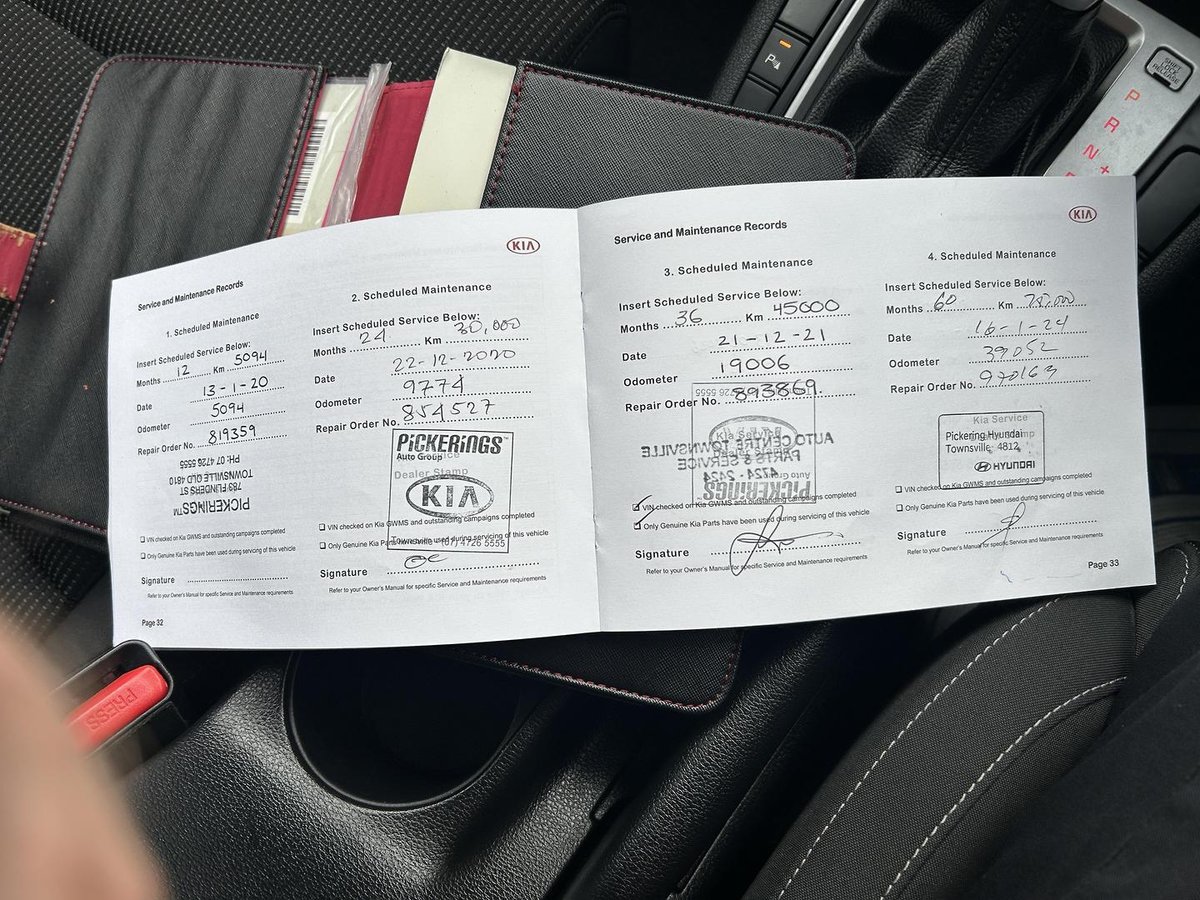 SHIFT LOCK RELEASE
P
R
N +
KIA
Service and Maintenance Records
1. Scheduled Maintenance
Insert Scheduled Service Below:
Months 12 Km 5094
Date 13-1-20
Odometer 5094
Repair Order No. 819359
PH: 07 4726 5555
TOWNSVILLE QLD 4810
783 FLINDERS ST
PICKERINGS™
VIN checked on Kia GWMS and outstanding campaigns completed
Only Genuine Kia Parts have been used during servicing of this vehicle
Signature
Refer to your Owner's Manual for specific Service and Maintenance requirements
Page 32
2. Scheduled Maintenance
Insert Scheduled Service Below:
Months 24 Km 30,000
Date 22-12-2020
Odometer 9774
Repair Order No. 854527
PICKERINGS™
Auto Group
Kia Service
Dealer Stamp
KIA
VIN checked on Kia GWMS and outstanding campaigns completed
Only Genuine Kia Parts have been used during servicing of this vehicle
Townsville (07) 4726 5555
Signature
Refer to your Owner's Manual for specific Service and Maintenance requirements
Service and Maintenance Records
KIA
3. Scheduled Maintenance
Insert Scheduled Service Below:
Months 36 Km 45000
Date 21-12-21
Odometer 19006
Repair Order No. 893869
Kia Service
AUTO CENTRE TOWNSVILLE
PARTS & SERVICE
4724 - 2424
Auto Group
PICKERINGS
VIN checked on Kia GWMS and outstanding campaigns completed
Only Genuine Kia Parts have been used during servicing of this vehicle
Signature
Refer to your Owner's Manual for specific Service and Maintenance requirements
4. Scheduled Maintenance
Insert Scheduled Service Below:
Months 60 Km
Date 16-1-24
Odometer 39052
Repair Order No. 970163
Kia Service
Pickering Hyundai
Townsville 4812
HYUNDAI
VIN checked on Kia GWMS and outstanding campaigns completed
Only Genuine Kia Parts have been used during servicing of this vehicle
Signature
Refer to your Owner's Manual for specific Service and Maintenance requirements
Page 33
PRESS